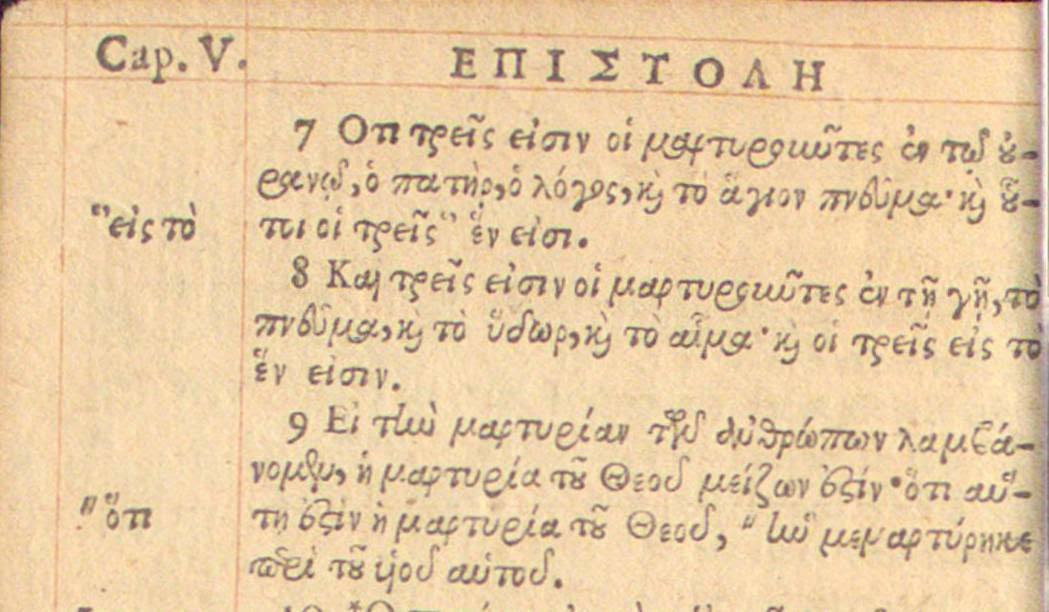 Cap. V. ΕΠΙΣΤΟΛΗ
7 Οτι τρεῖς εἰσιν οἱ μαρτυροῦντες ἐν τῷ οὐ-
ρανῷ, ὁ πατὴρ, ὁ λόγος, καὶ τὸ ἅγιον πνεῦμα· καὶ οὗ-
"εἰς τὸ τοι οἱ τρεῖς " ἕν εἰσι.
8 Καὶ τρεῖς εἰσιν οἱ μαρτυροῦντες ἐν τῇ γῇ, τὸ
πνεῦμα, καὶ τὸ ὕδωρ, καὶ τὸ αἷμα· καὶ οἱ τρεῖς εἰς τὸ
ἕν εἰσιν.
9 Εἰ τὴν μαρτυρίαν τῶν ἀνθρώπων λαμβά-
νομεν, ἡ μαρτυρία τοῦ Θεοῦ μείζων ἐστίν· ὅτι αὕ-
"ὅτι τη ἐστὶν ἡ μαρτυρία τοῦ Θεοῦ, " ἣν μεμαρτύρηκε
περὶ τοῦ υἱοῦ αὐτοῦ.